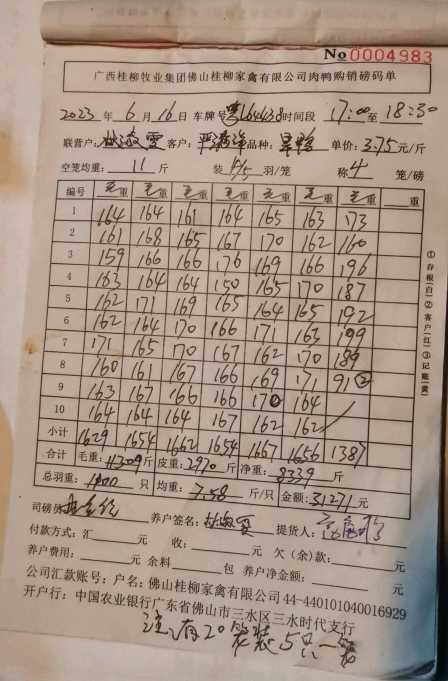 No 0004983
广西桂柳牧业集团佛山桂柳家禽有限公司肉鸭购销磅码单
2023 年 6 月 16 日 车牌号 164438 时间段 17:00 至 18:30
联营户: 客户: 品种: 单价: 3.75 元/斤
空笼均重: 11 斤 装 4/5 羽/笼 称 4 笼/磅
编号 毛重 毛重 毛重 毛重 毛重 毛重 毛重 重
1 164 164 161 164 165 163 173
2 161 168 165 167 170 162 160
3 159 166 166 176 169 166 196
4 163 164 164 150 165 170 187
5 162 171 169 165 164 165 192
6 162 164 170 166 171 163 199
7 171 165 170 167 162 170 189
8 160 161 167 166 169 171 91②
9 163 167 166 166 170 164
10 164 164 164 167 162 162
小计 1629 1654 1662 1654 1667 1656 1387
合计 毛重: 11309 斤 皮重: 2970 斤 净重: 8339 斤
总羽重: 1100 只 均重: 7.58 斤/只 金额: 31271 元
①存根(白)②客户(红)③记账(黄)
司磅员: 养户签名: 提货人:
付款方式: 汇 元 收: 元 欠(余)款: 元
养户费用: 元 余料 包 养户净金额: 元
公司汇款账号: 户名: 佛山桂柳家禽有限公司 44-440101040016929
开户行: 中国农业银行广东省佛山市三水区三水时代支行
注:有20笼装5只一笼